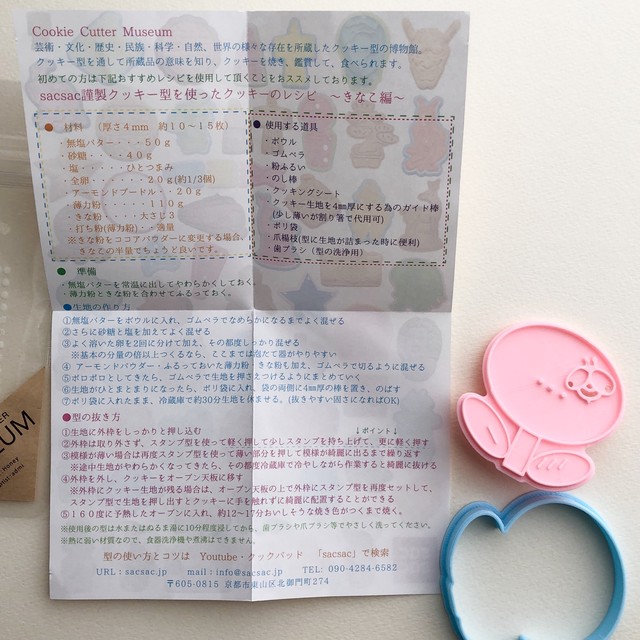 Cookie Cutter Museum
芸術・文化・歴史・民族・科学・自然、世界の様々な存在を所蔵したクッキー型の博物館。
クッキー型を通して所蔵品の意味を知り、クッキーを焼き、鑑賞して、食べられます。
初めての方は下記おすすめレシピを使用して頂くことをおススメしております。
sacsac謹製クッキー型を使ったクッキーのレシピ ～きなこ編～
● 材料 (厚さ4mm 約10～15枚)
・無塩バター・・・・50g
・砂糖・・・・・40g
・塩・・・・・・ひとつまみ
・全卵・・・・・20g(約1/3個)
・アーモンドプードル・・20g
・薄力粉・・・・・110g
・きな粉・・・・大さじ3
・打ち粉(薄力粉)・・適量
※きな粉をココアパウダーに変更する場合、
きなこの半量でちょうど良いです。
● 使用する道具
・ボウル
・ゴムベラ
・粉ふるい
・のし棒
・クッキングシート
・クッキー生地を4mm厚にする為のガイド棒
(少し薄いが割り箸で代用可)
・ポリ袋
・爪楊枝(型に生地が詰まった時に便利)
・歯ブラシ(型の洗浄用)
● 準備
・無塩バターを常温に出してやわらかくしておく。
・薄力粉ときな粉を合わせてふるっておく。
●生地の作り方
①無塩バターをボウルに入れ、ゴムベラでなめらかになるまでよく混ぜる
②さらに砂糖と塩を加えてよく混ぜる
③よく溶いた卵を2回に分けて加え、その都度しっかり混ぜる
※基本の分量の倍以上つくるなら、ここまでは泡たて器がやりやすい
④ アーモンドパウダー・ふるっておいた薄力粉・きな粉も加え、ゴムベラで切るように混ぜる
⑤ボロボロとしてきたら、ゴムベラで生地を押さえつけるようにまとめていく
⑥生地がひとまとまりになったら、ポリ袋に入れ、袋の両側に4mm厚の棒を置き、のばす
⑦ポリ袋に入れたまま、冷蔵庫で約30分生地を休ませる。(抜きやすい固さになればOK)
●型の抜き方
①生地に外枠をしっかりと押し込む
↓ポイント↓
②外枠は取り外さず、スタンプ型を使って軽く押して少しスタンプを持ち上げて、更に軽く押す
③模様が薄い場合は再度スタンプ型を使って薄い部分を押して模様が綺麗に出るまで繰り返す
※途中生地がやわらかくなってきたら、その都度冷蔵庫で冷やしながら作業すると綺麗に抜ける
④外枠を外し、クッキーをオーブン天板に移す
※外枠にクッキー生地が残る場合は、オーブン天板の上で外枠にスタンプ型を再度セットして、
スタンプ型で生地を押し出すとクッキーに手を触れずに綺麗に配置することができる
⑤160度に予熱したオーブンに入れ、約12~17分おいしそうな焼き色がつくまで焼く。
※使用後の型は水またはぬるま湯に10分程度浸してから、歯ブラシや爪ブラシ等でやさしく洗ってください。
※熱に弱い材質なので、食器洗浄機や煮沸はできません。
型の使い方とコツは Youtube・クックパッド 「sacsac」で検索
URL：sacsac.jp mail：info@sacsac.jp TEL：090-4284-6582
〒605-0815 京都市東山区北御門町274